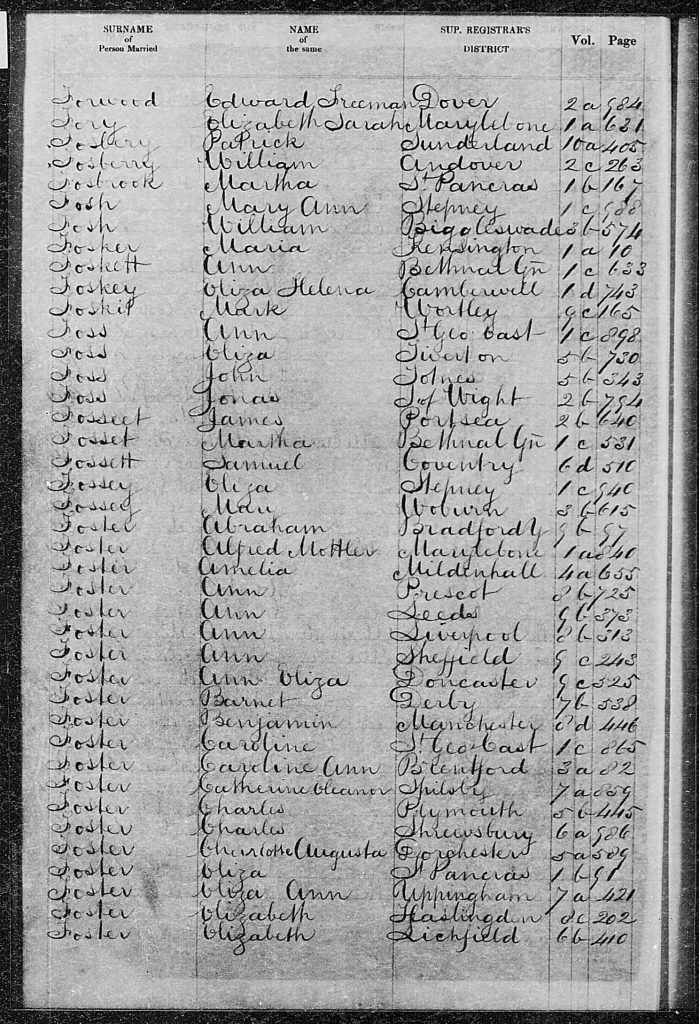 SURNAME of Person Married NAME of the same SUP. REGISTRAR'S DISTRICT Vol. Page
Forwood Edward Freeman Dover 2a 984
Fory Elizabeth Sarah Marylebone 1a 631
Fosbery Patrick Sunderland 10a 405
Fosberry William Andover 2c 263
Fosbrook Martha St Pancras 1b 167
Fosh Mary Ann Stepney 1c 988
Fosh William Biggleswade 3b 574
Fosker Maria Kensington 1a 10
Foskett Ann Bethnal Gn 1c 633
Foskey Eliza Helena Camberwell 1d 743
Foskit Mark Wortley 9c 165
Foss Ann St Geo East 1c 898
Foss Eliza Tiverton 5b 730
Foss John Totnes 5b 343
Foss Jonas I of Wight 2b 794
Fosseet James Portsea 2b 640
Fosset Martha Bethnal Gn 1c 531
Fossett Samuel Coventry 6d 510
Fossey Eliza Stepney 1c 940
Fossey Mary Woburn 3b 615
Foster Abraham Bradford Y 9b 97
Foster Alfred Mottler Marylebone 1a 840
Foster Amelia Mildenhall 4a 655
Foster Ann Prescot 8b 725
Foster Ann Leeds 9b 373
Foster Ann Liverpool 8b 313
Foster Ann Sheffield 9c 243
Foster Ann Eliza Doncaster 9c 325
Foster Barnet Derby 7b 538
Foster Benjamin Manchester 8d 446
Foster Caroline St Geo East 1c 865
Foster Caroline Ann Brentford 3a 82
Foster Catherine Eleanor Spilsby 7a 859
Foster Charles Plymouth 5b 445
Foster Charles Shrewsbury 6a 986
Foster Charlotte Augusta Dorchester 5a 509
Foster Eliza St Pancras 1b 91
Foster Eliza Ann Uppingham 7a 421
Foster Elizabeth Haslingden 8c 202
Foster Elizabeth Lichfield 6b 410